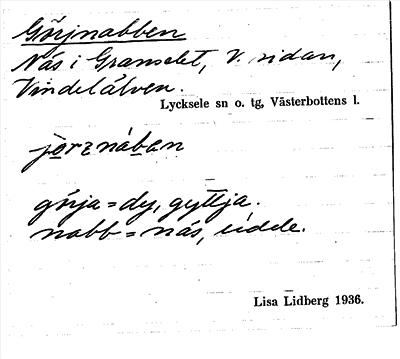 Görjnabben
Näs i Granselet, V. sidan,
Vindelälven.
Lycksele sn o. tg, Västerbottens l.
görja = dy, gyttja.
nabb = näs, udde.
Lisa Lidberg 1936.